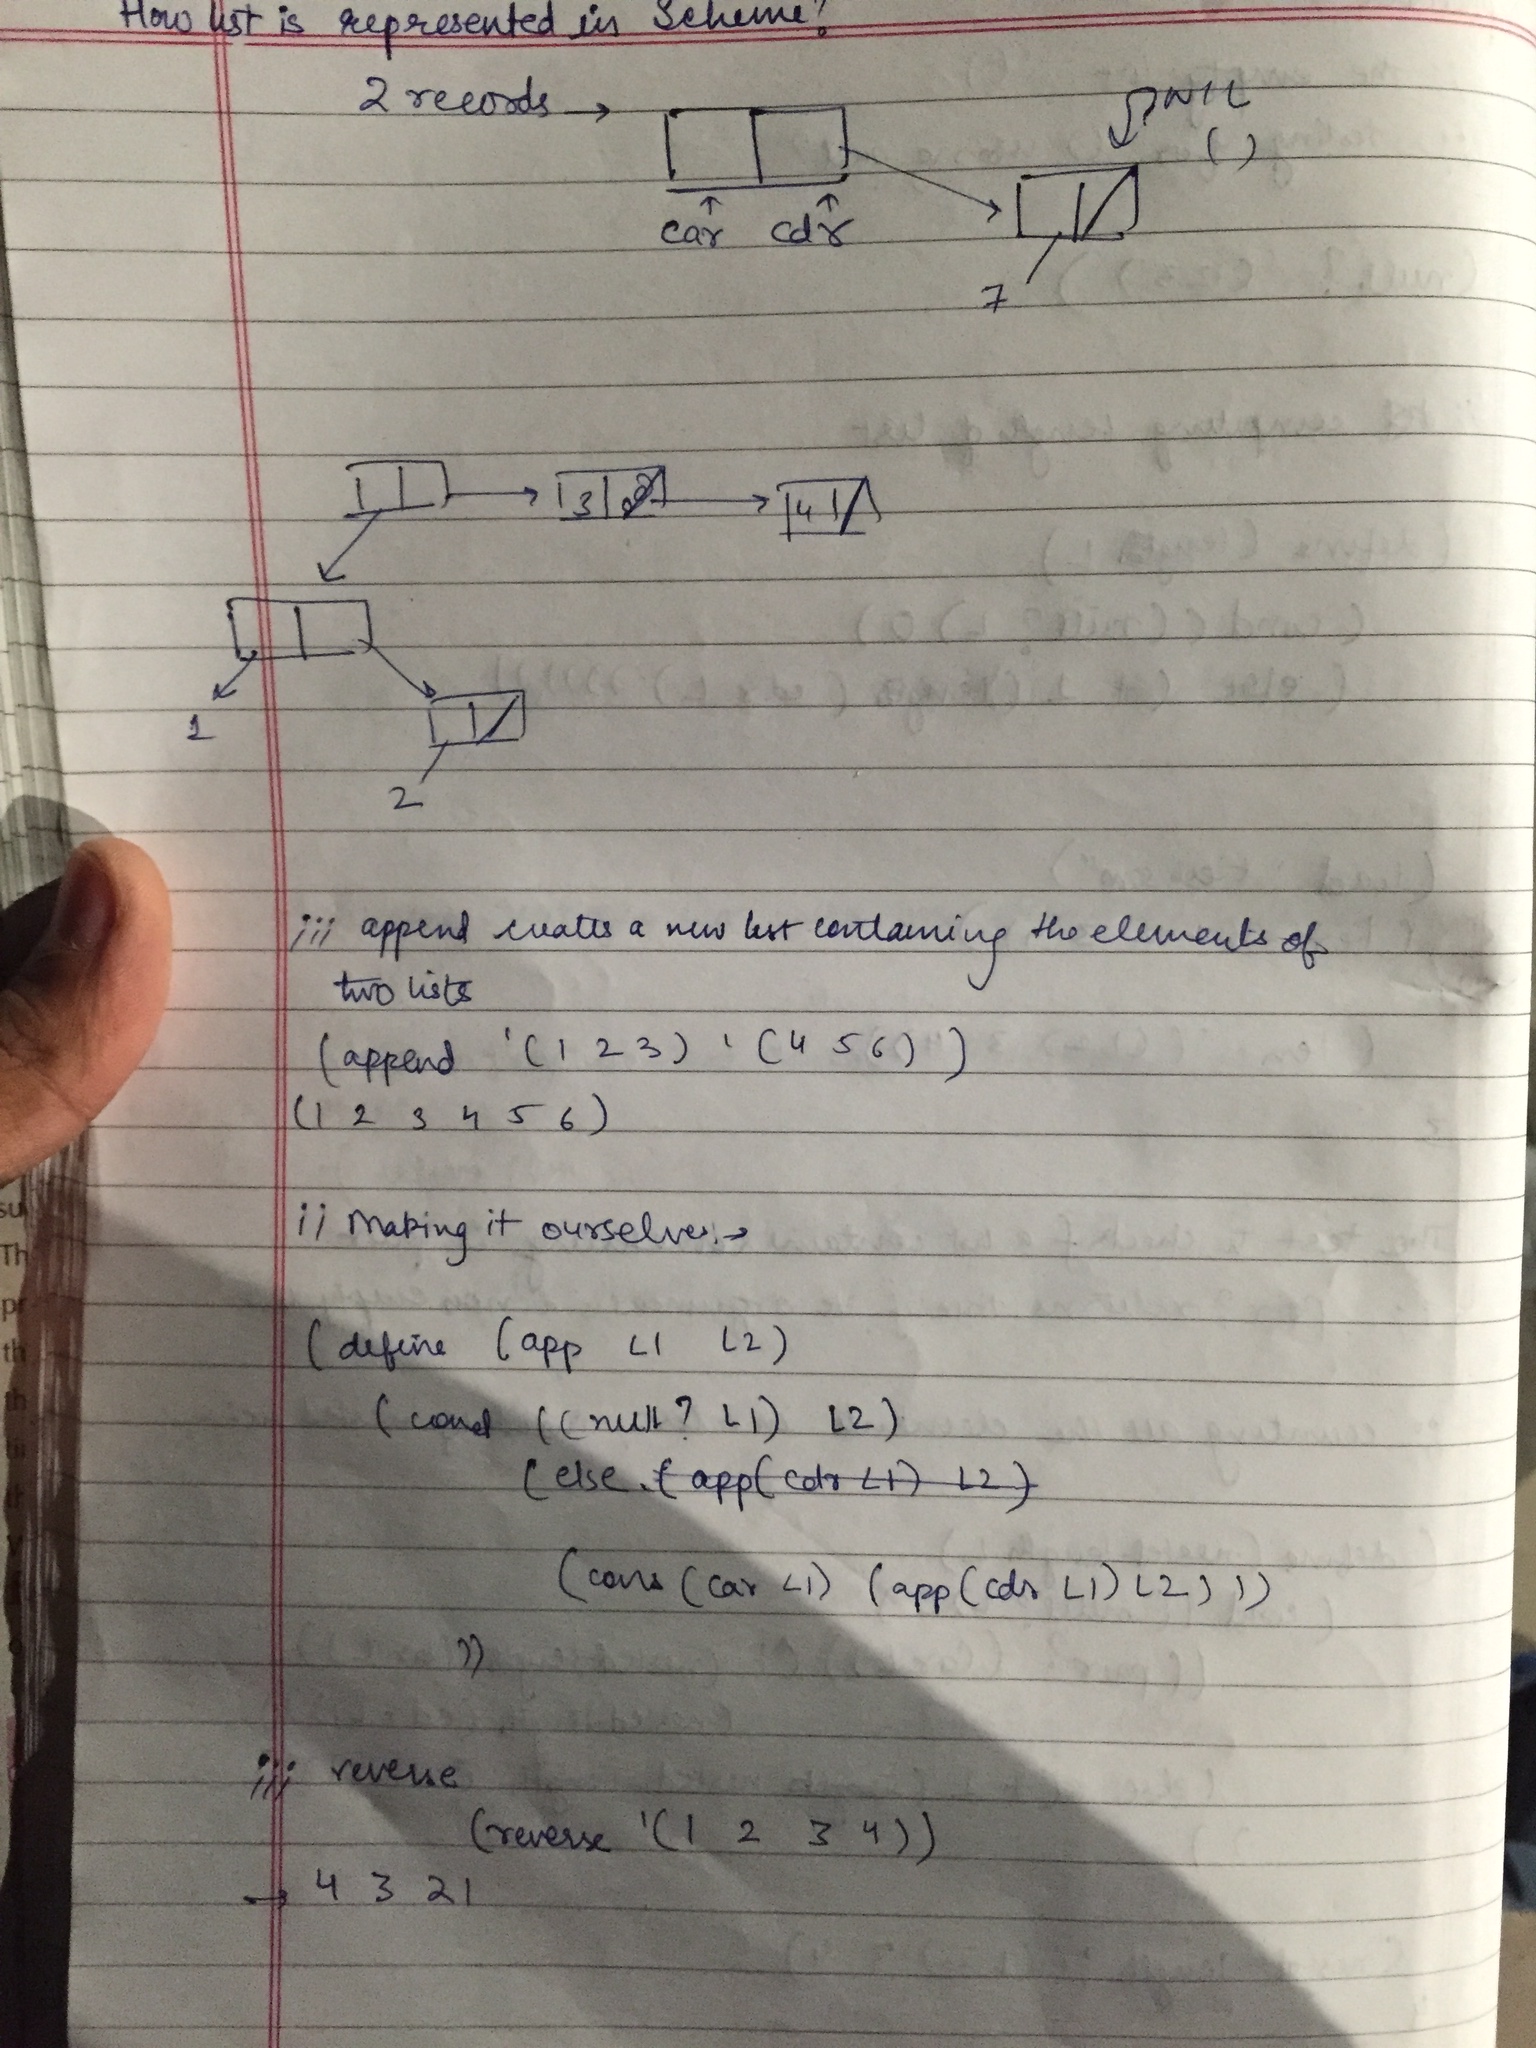 How list is represented in Scheme?
2 records →
NIL
( )
car cdr
7
3
4
1
2
;;; append creates a new list containing the elements of
two lists
(append '(1 2 3) '(4 5 6) )
(1 2 3 4 5 6)
;; Making it ourselves:→
(define (app L1 L2)
(cond ((null? L1) L2)
(else (app(cdr L1) L2)
(cons (car L1) (app(cdr L1) L2)))
))
;;; reverse
(reverse '(1 2 3 4))
→ 4 3 2 1
su
Th
pr
th
th